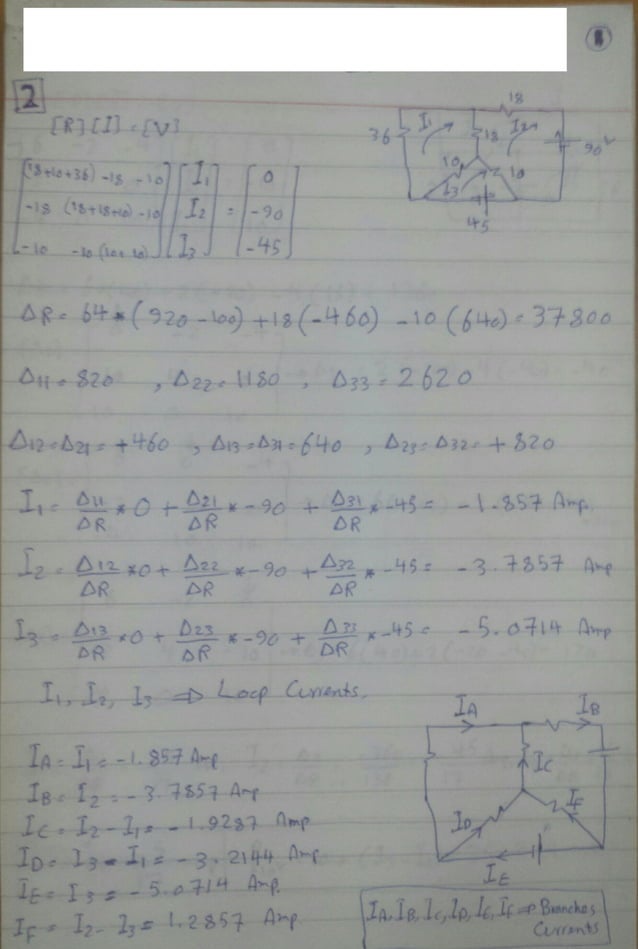 2
[R][I]=[V]
18
36 I1 18 I2 90V
10 10
I3
45
[(18+10+36) -18 -10] [I1] [0]
[-18 (18+18+10) -10] [I2] = [-90]
[-10 -10 (10+10)] [I3] [-45]
ΔR = 64*(920-100)+18(-460) -10(640)=37800
Δ11=820 , Δ22=1180 , Δ33=2620
Δ12=Δ21=+460 , Δ13=Δ31=640 , Δ23=Δ32=+820
I1 = Δ11/ΔR *0 + Δ21/ΔR *-90 + Δ31/ΔR *-45 = -1.857 Amp.
I2 = Δ12/ΔR *0+ Δ22/ΔR *-90 + Δ32/ΔR *-45 = -3.7857 Amp
I3 = Δ13/ΔR *0 + Δ23/ΔR *-90 + Δ33/ΔR *-45 = -5.0714 Amp
I1, I2, I3 ⇒ Loop Currents.
IA IB
IC
ID IF
IE
IA = I1 = -1.857 Amp
IB = I2 = -3.7857 Amp
IC = I2-I1 = -1.9287 Amp
ID = I3-I1 = -3.2144 Amp
IE = I3 = -5.0714 Amp.
IF = I2-I3 = 1.2857 Amp.
IA, IB, IC, ID, IE, IF ⇒ Branches
Currents